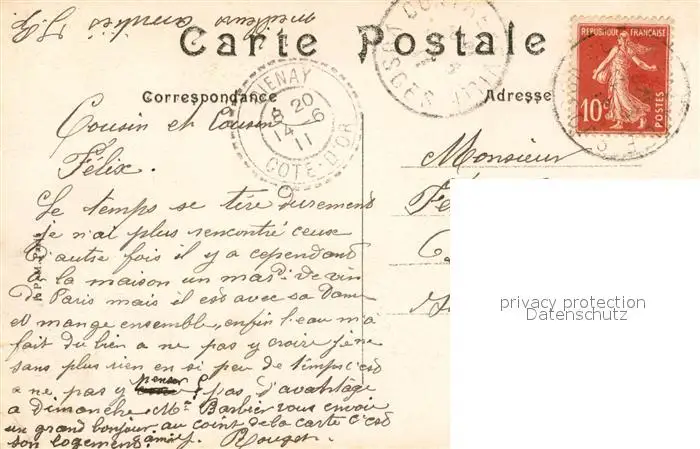 meilleurs amitiés
Carte Postale
REPUBLIQUE FRANÇAISE
10
POSTES
Correspondance
Adresse
8 20
14 6
11
COTE-D'OR
Cousin et Cousine
Félix.
Monsieur
Le temps se tire durement
je n'ai plus rencontré ceux
d'autre fois il y a cependant
à la maison un md. de vin
de Paris mais il est avec sa Dame
et mange ensemble, enfin l'eau m'a
fait du bien a ne pas y croire je ne
sans plus rien en si peu de temps c'est
a ne pas y penser pas d'avantage
a Dimanche Mr Barbier vous envoie
un grand bonjour. au coint de la carte c'est
son logement. amies. Rouget.
privacy protection
Datenschutz